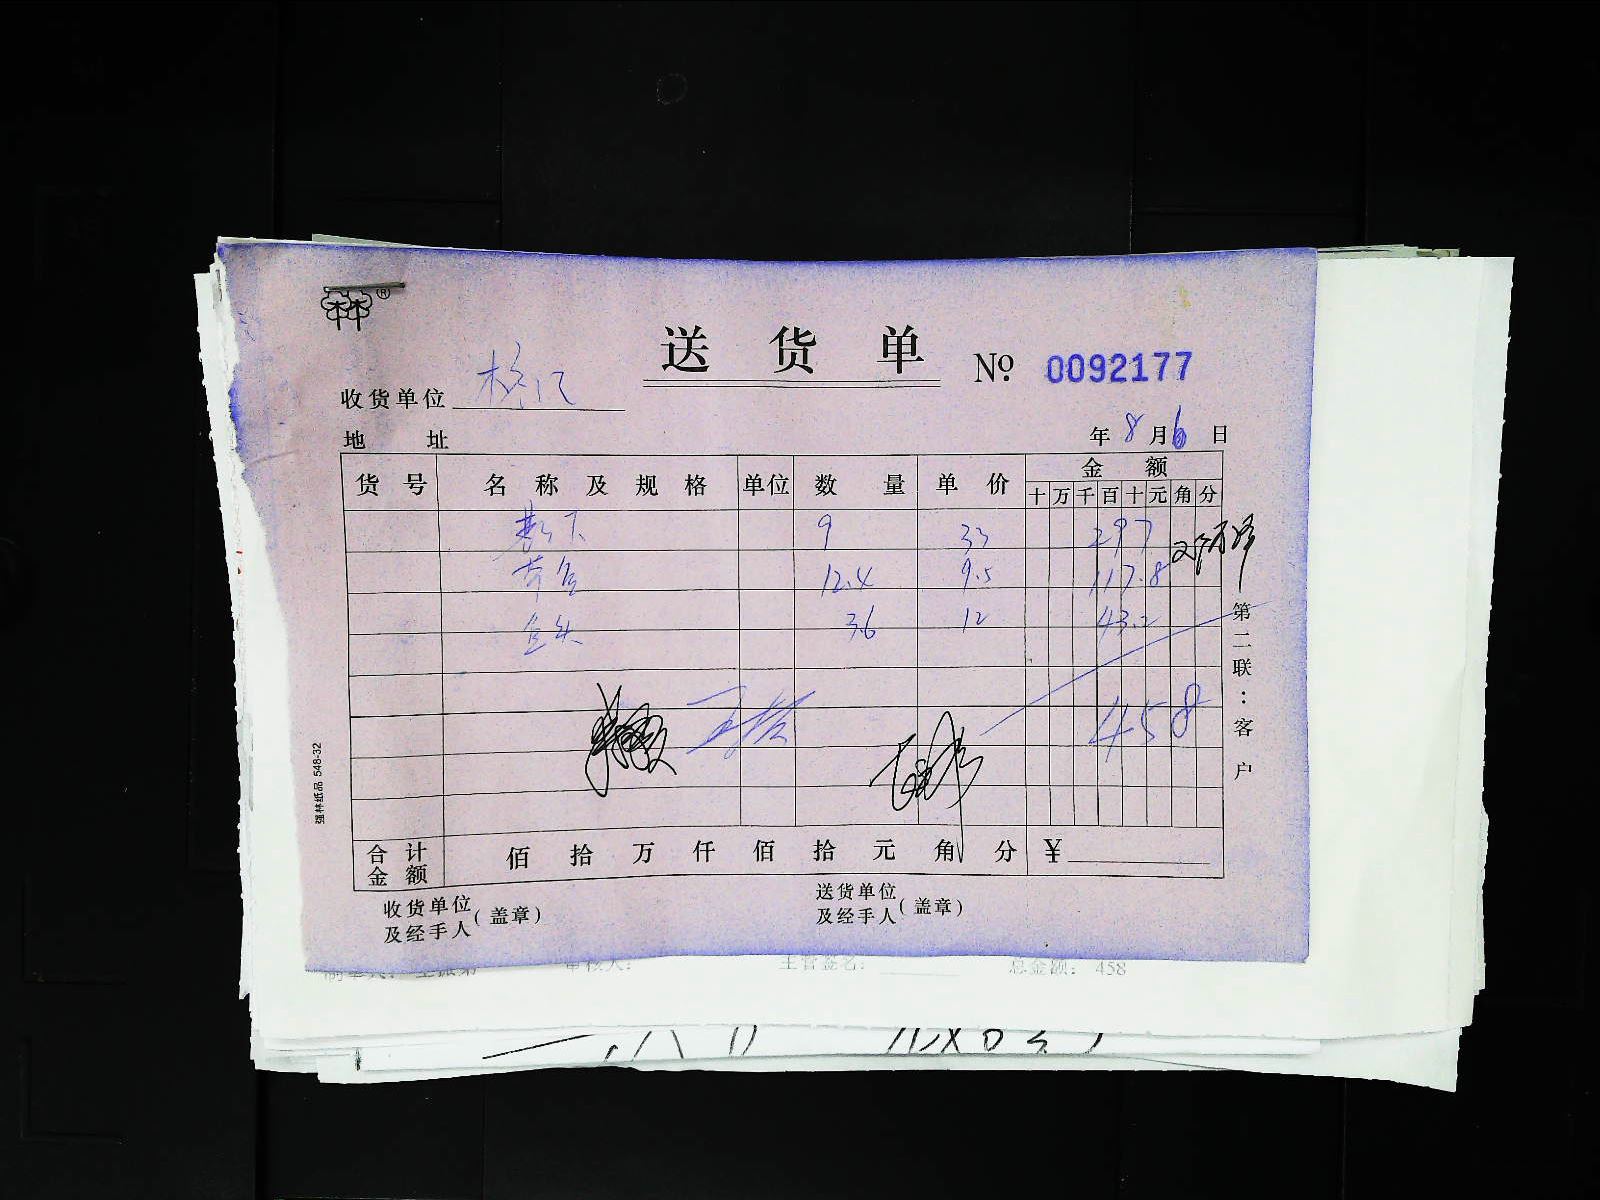 林®
送货单 № 0092177
收货单位
地 址 年 8 月 6 日
货号 名称及规格 单位 数量 单价 金额
十 万 千 百 十 元 角 分
9 33 297
12.4 9.5 117.8
鱼头 3.6 12 43.2
458
合计金额 佰 拾 万 仟 佰 拾 元 角 分 ¥
收货单位及经手人(盖章) 送货单位及经手人(盖章)
第二联:客户
强林纸品 548-32
审核人: 主管签名: 总金额: 458